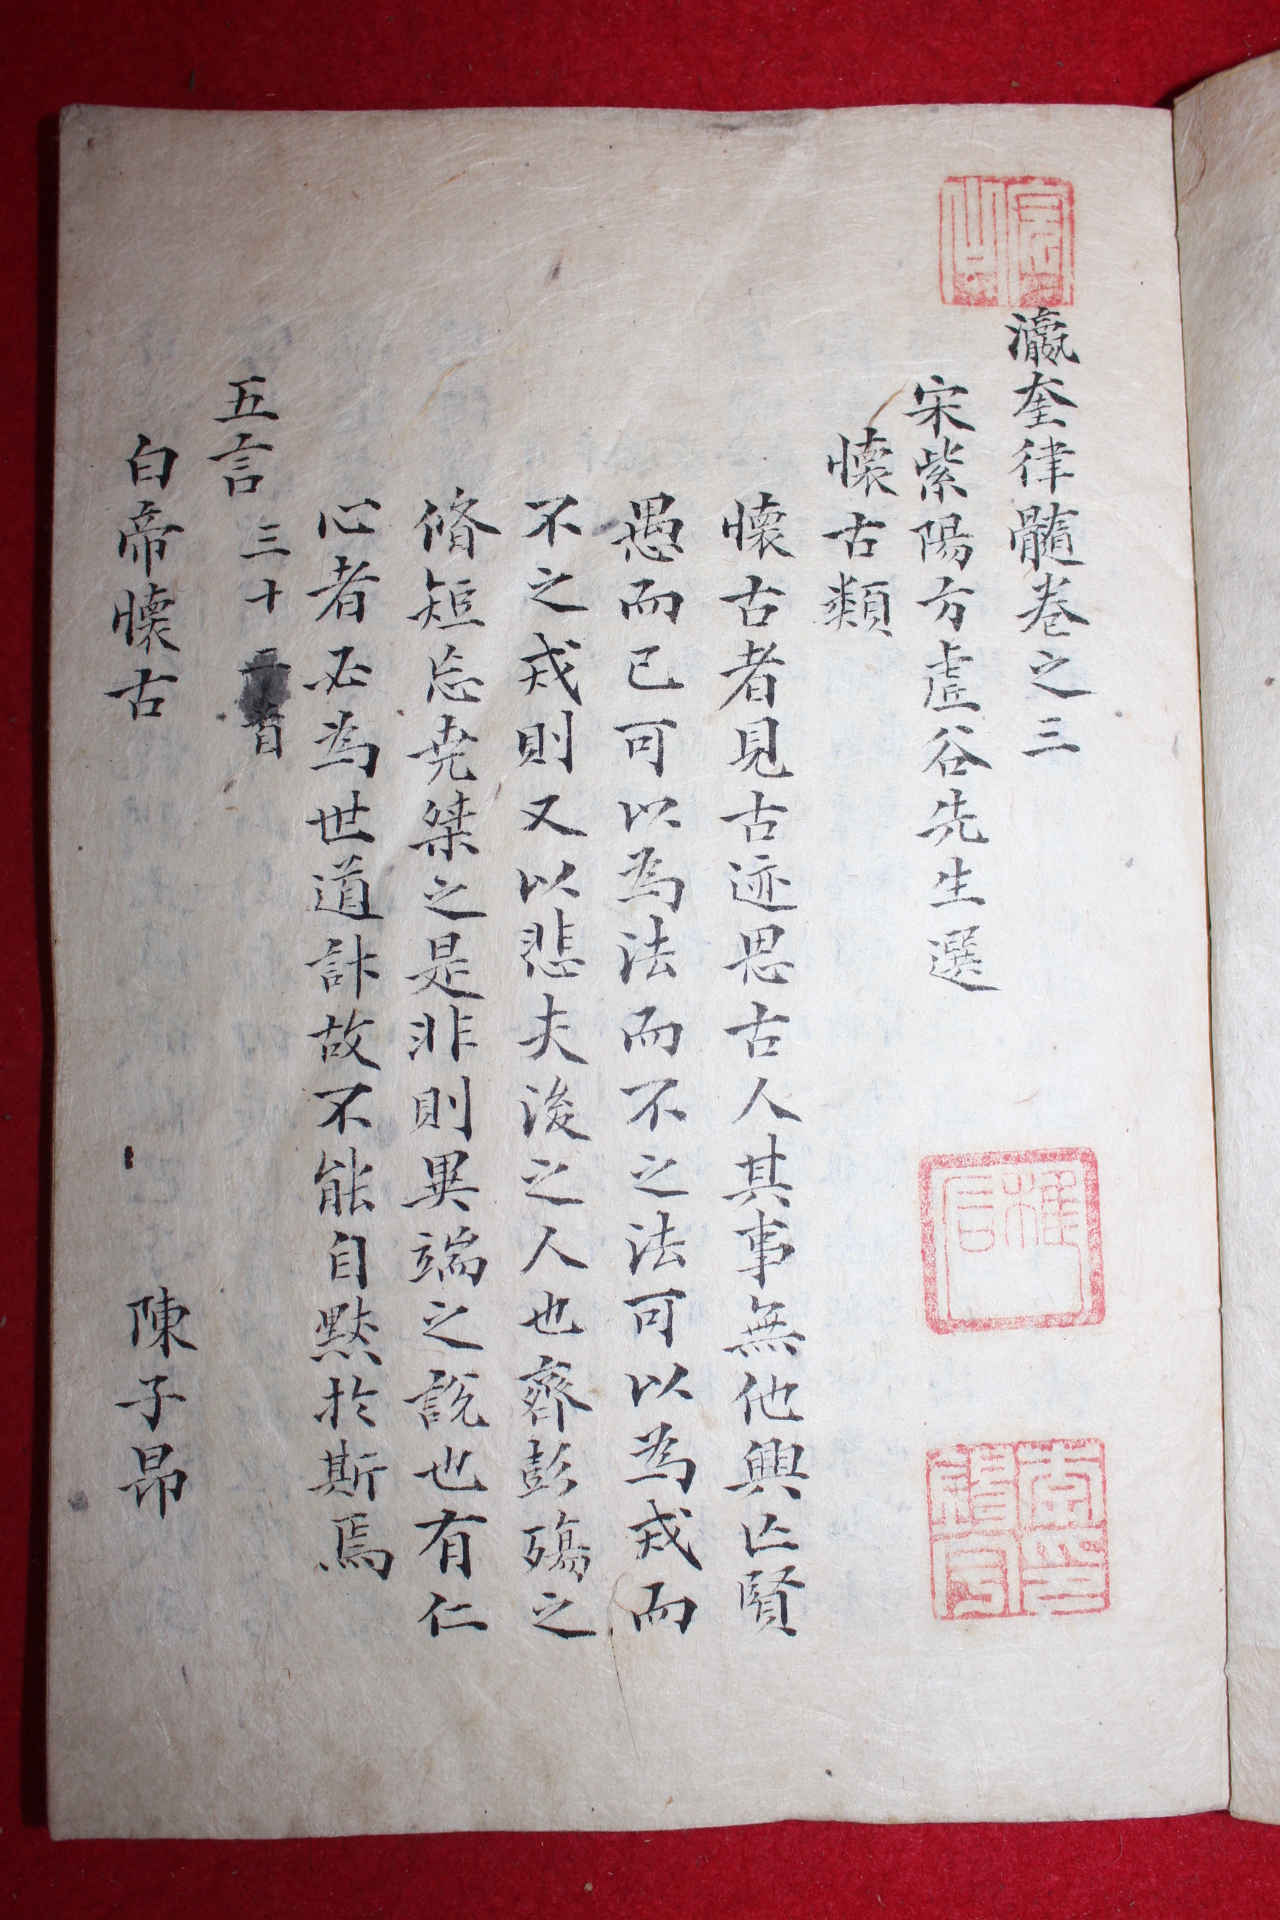 瀛奎律髓卷之三
宋紫陽方虛谷先生選
懷古類
懷古者見古迹思古人其事無他興亡賢
愚而已可以為法而不之法可以為戒而
不之戒則又以悲夫後之人也齊彭殤之
脩短忘尭桀之是非則異端之說也有仁
心者必為世道計故不能自默於斯焉
五言 三十 首
白帝懷古 陳子昂